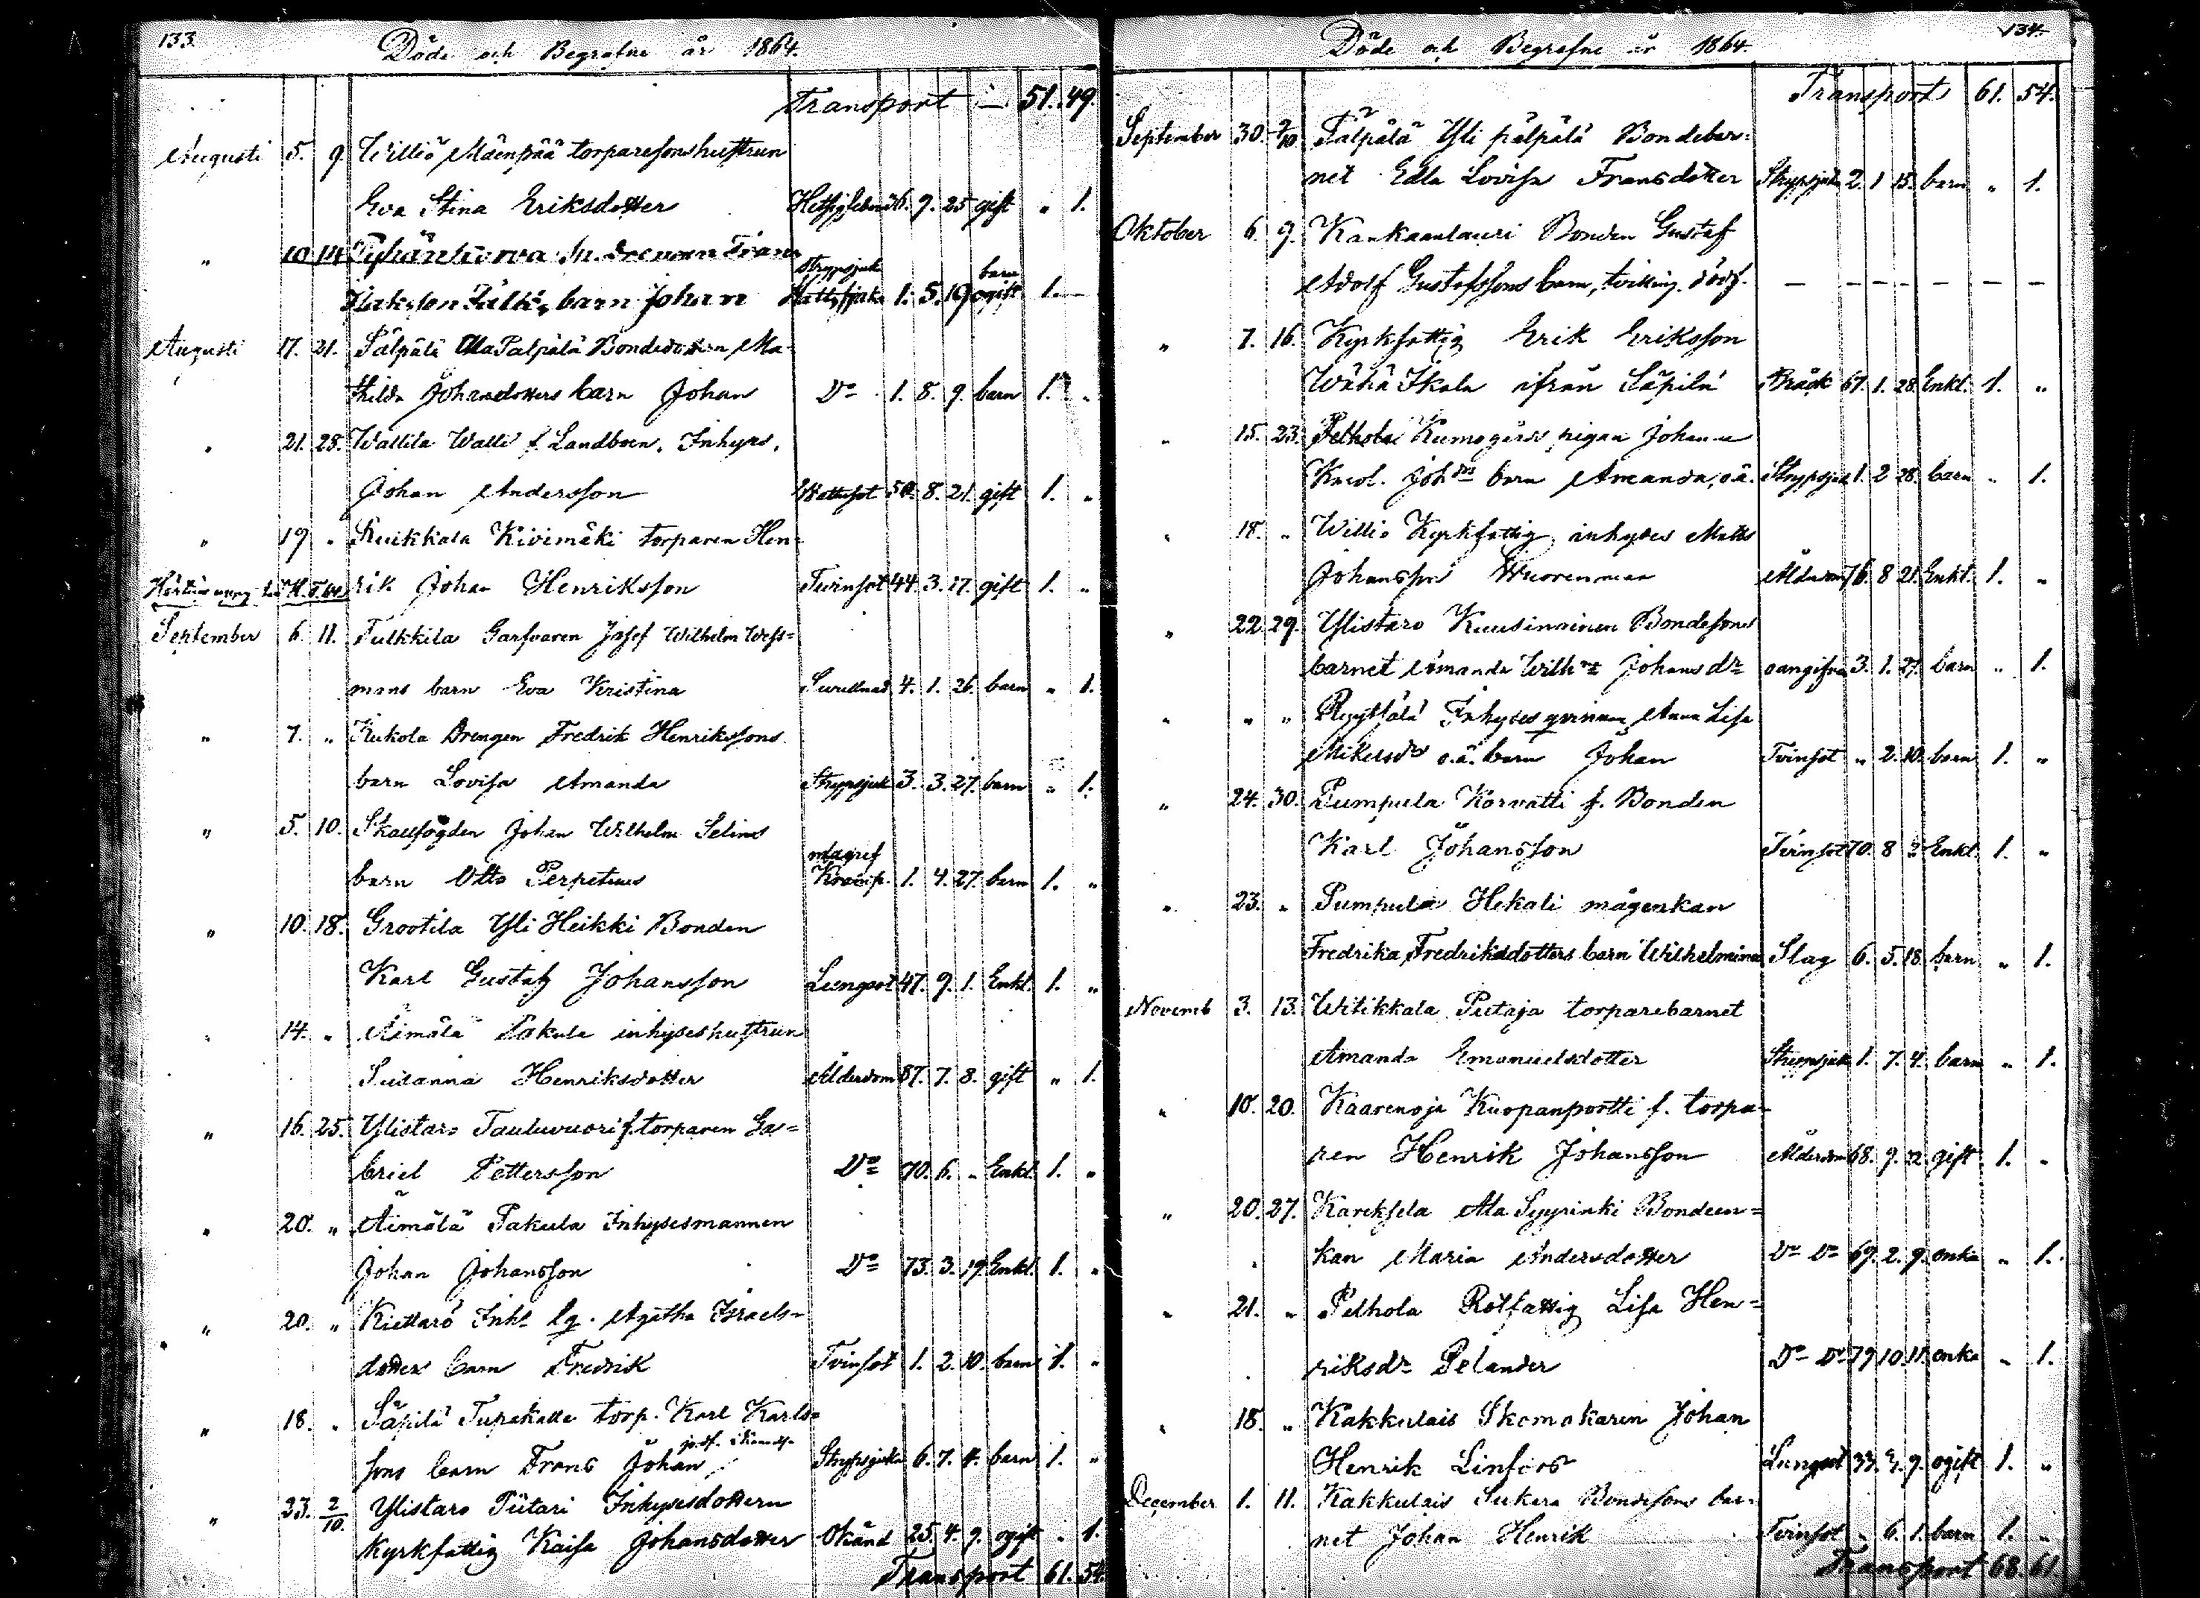 133.
Döde och Begrafne år 1864.
Transport — 51. 49.
Augusti 5. 9. Williö Mäenpää torparesonshustrun
Eva Stina Eriksdotter 36. 9. 25 gift „ 1.
„ 10 14
barn Johan 1. 5. 19 barn ogift 1. —
Augusti 17. 21. Pälpälä Ala Palpälä Bondedottren Ma-
thilda Johansdotters barn Johan Do 1. 8. 9. barn 1. „
„ 21. 28. Wallila Walli f. Landboen, Inhyses,
Johan Andersson Wattusot 50. 8. 21. gift 1. „
„ 19 „ Ruikkala Kivimäki torparen Hen-
rik Johan Henriksson Tvinsot 44. 3. 17. gift 1. „
September 6. 11. Tulkkila Garfvaren Josef Wilhelm Wess=
mans barn Eva Kristina 4. 1. 26. barn „ 1.
„ 7. „ Kukola Drengen Fredrik Henrikssons
barn Lovisa Amanda Strypsjuk 3. 3. 27. barn „ 1.
„ 5. 10. Skallfogden Johan Wilhelm Selins
barn Otto Perpetuus 1. 4. 27. barn 1. „
„ 10. 18. Grootila Yli Heikki Bonden
Karl Gustaf Johansson Lungsot 47. 9. 1. Enkl. 1. „
„ 14. „ Äimälä Pakula inhyseshustrun
Susanna Henriksdotter Ålderdom 87. 7. 8. gift „ 1.
„ 16. 25. Ylistaro Tauluvuori f. torparen Ga=
briel Pettersson Do 70. 6. „ Enkl. 1. „
„ 20. „ Äimälä Pakula Inhysesmannen
Johan Johansson Do 73. 3. 19. Enkl. 1. „
„ 20. „ Kiettarö Inhs Agatha Israels-
dotters barn Fredrik Tvinsot 1. 2. 10. barn 1. „
„ 18. „ Säpilä torp. Karl Karls=
sons barn Frans Johan Strypsjuka 6. 7. 4. barn 1. „
„ 23. 2/10. Ylistaro Piitari Inhysesdottern
kyrkfattig Kaisa Johansdotter Okänd 25. 4. 9. ogift „ 1.
Transport 61. 54.
134.
Döde och Begrafne år 1864.
Transport 61. 54.
September 30. 2/10 Pälpälä Yli pälpälä Bondebar=
net Edla Lovisa Fransdotter Strypsjuka 2. 1 15. barn „ 1.
Oktober 6. 9. Kankaanlauri Bonden Gustaf
Adolf Gustafssons barn, tvilling dödf. — — — — — — —
„ 7. 16. Kyrkfattig Erik Eriksson
Wähä Ikala ifrån Säpilä Bråck 67. 1. 28. Enkl. 1. „
„ 15. 23. Pelhola Kumogård pigan Johanna
Karol. Johdr barn Amanda, o.ä. Strypsjuk 1. 2 28. barn „ 1.
„ 18. „ Williö Kyrkfattig inhyses Matts
Johansson Wuorenmaa Ålderdom 76. 8 21. Enkl. 1. „
„ 22. 29. Ylistaro Kuusinainen Bondesons
barnet Amanda Wilhna Johansdr oangifven 3. 1. 27. barn „ 1.
„ „ „ Inhyses qvinnan Anna Lisa
Mikelsdr o.ä. barn Johan Tvinsot „ 2. 10. barn 1. „
„ 24. 30. Pumpula Korvatti f. Bonden
Karl Johansson Tvinsot 70. 8 „ Enkl. 1. „
„ 23. „ Pumpula Hekali mågenkan
Fredrika Fredriksdotters barn Wilhelmina Slag 6. 5. 18. barn „ 1.
Novemb 3. 13. Witikkala Putaja torparebarnet
Amanda Emanuelsdotter Strypsjuk 1. 7. 4. barn „ 1.
„ 10. 20. Kaarenoja Kuopanportti f. torpa-
ren Henrik Johansson Ålderdom 68. 9. 22. gift 1. „
„ 20. 27. Kareksela Ala Syyrinki Bondeen=
kan Maria Andersdotter Do Do 69. 2. 9. enka „ 1.
„ 21. „ Pelhola Rotfattig Lisa Hen=
riksdr Pelander Do Do 79 10. 11. enka „ 1.
„ 18. „ Kakkulais Skomakaren Johan
Henrik Linfors Lungsot 33. 3. 9. ogift 1. „
December 1. 11. Kakkulais Sukera Bondesons bar-
net Johan Henrik Tvinsot „ 6. 1. barn 1. „
Transport 68. 61.